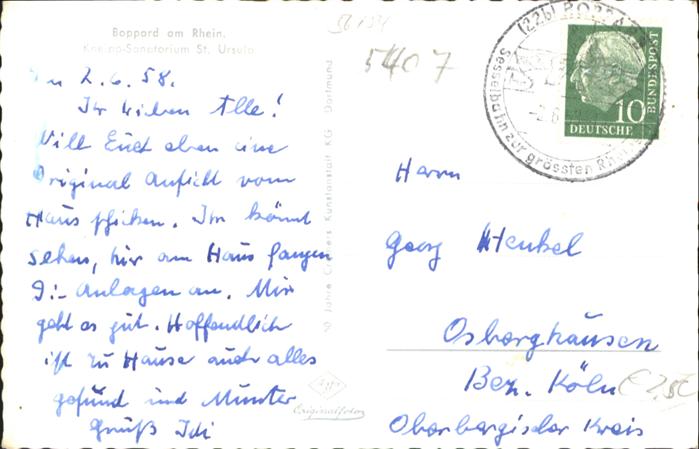 Boppard am Rhein.
Kneipp-Sanatorium St. Ursula
2.6.58.
Ihr lieben Alle!
Will Euch eben eine
Original Ansicht vom
Haus schicken. Ihr könnt
sehen, hier am Haus fangen
die Anlagen an. Mir
geht es gut. Hoffendlich
ist zu Hause auch alles
gesund und Munter
Gruß Idi
Kunstanstalt KG Dortmund
Agfa
Originalfoto
5407
(22b) BOPPARD
Sesselbahn zur grössten Rhein
10
DEUTSCHE
BUNDESPOST
Herrn
Georg Henkel
Osberghausen
Bez. Köln
Oberbergischer Kreis
€ 2,50